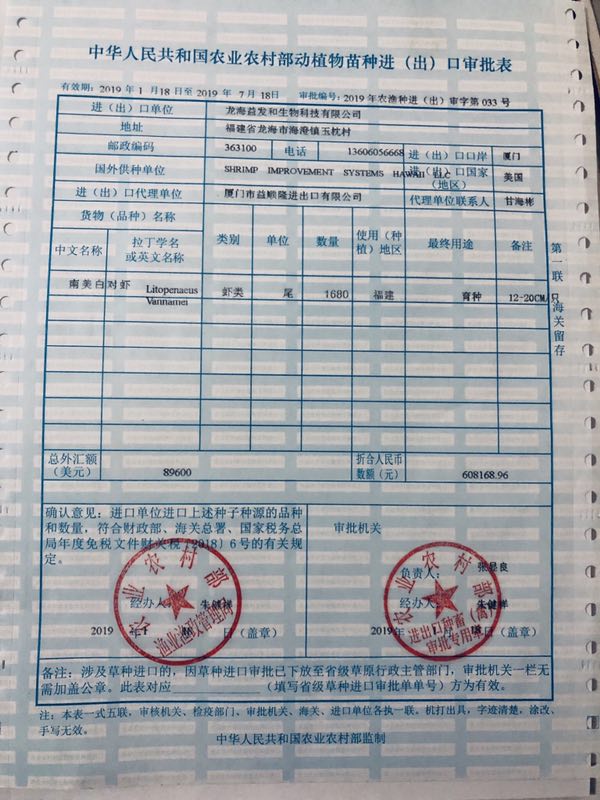 中华人民共和国农业农村部动植物苗种进（出）口审批表
有效期：2019 年 1 月18 日至 2019 年 7 月18日 审批编号：2019 年农渔种进（出）审字第 033 号
进（出）口单位 龙海益发和生物科技有限公司
地址 福建省龙海市海澄镇玉枕村
邮政编码 363100 电话 13606056668 进（出）口口岸 厦门
国外供种单位 SHRIMP IMPROVEMENT SYSTEMS HAWAII LLC 进（出）口国家（地区） 美国
进（出）口代理单位 厦门市益顺隆进出口有限公司 代理单位联系人 甘海彬
货物（品种）名称 类别 单位 数量 使用（种植）地区 最终用途 备注
中文名称 拉丁学名或英文名称
南美白对虾 Litopenaeus Vannamei 虾类 尾 1680 福建 育种 12-20CM/只
第一联 海关留存
总外汇额（美元） 89600 折合人民币数额（元） 608168.96
确认意见：进口单位进口上述种子种源的品
和数量，符合财政部、海关总署、国家税务总
局年度免税文件财关税〔2018〕6号的有关规
定。
经办人：
2019 年1 18 日（盖章）
农业农村部
渔业渔政管理局
审批机关
负责人： 张显良
经办人： 朱健祥
2019年 1 18 日（盖章）
农业农村部
进出口种畜（禽）
审批专用章
备注：涉及草种进口的，因草种进口审批已下放至省级草原行政主管部门，审批机关一栏无
需加盖公章。此表对应（填写省级草种进口审批单单号）方为有效。
注：本表一式五联，审核机关、检疫部门、审批机关、海关、进口单位各执一联。机打出具，字迹清楚，涂改、
手写无效。
中华人民共和国农业农村部监制